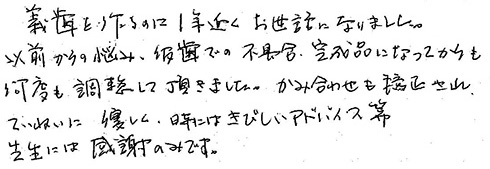 義歯を作るのに1年近くお世話になりました。
以前からの悩み、仮歯での不具合、完成品になってからも
何度も調整して頂きました。かみ合わせも矯正され、
ていねいに 優しく、時にはきびしいアドバイス等
先生には感謝のみです。